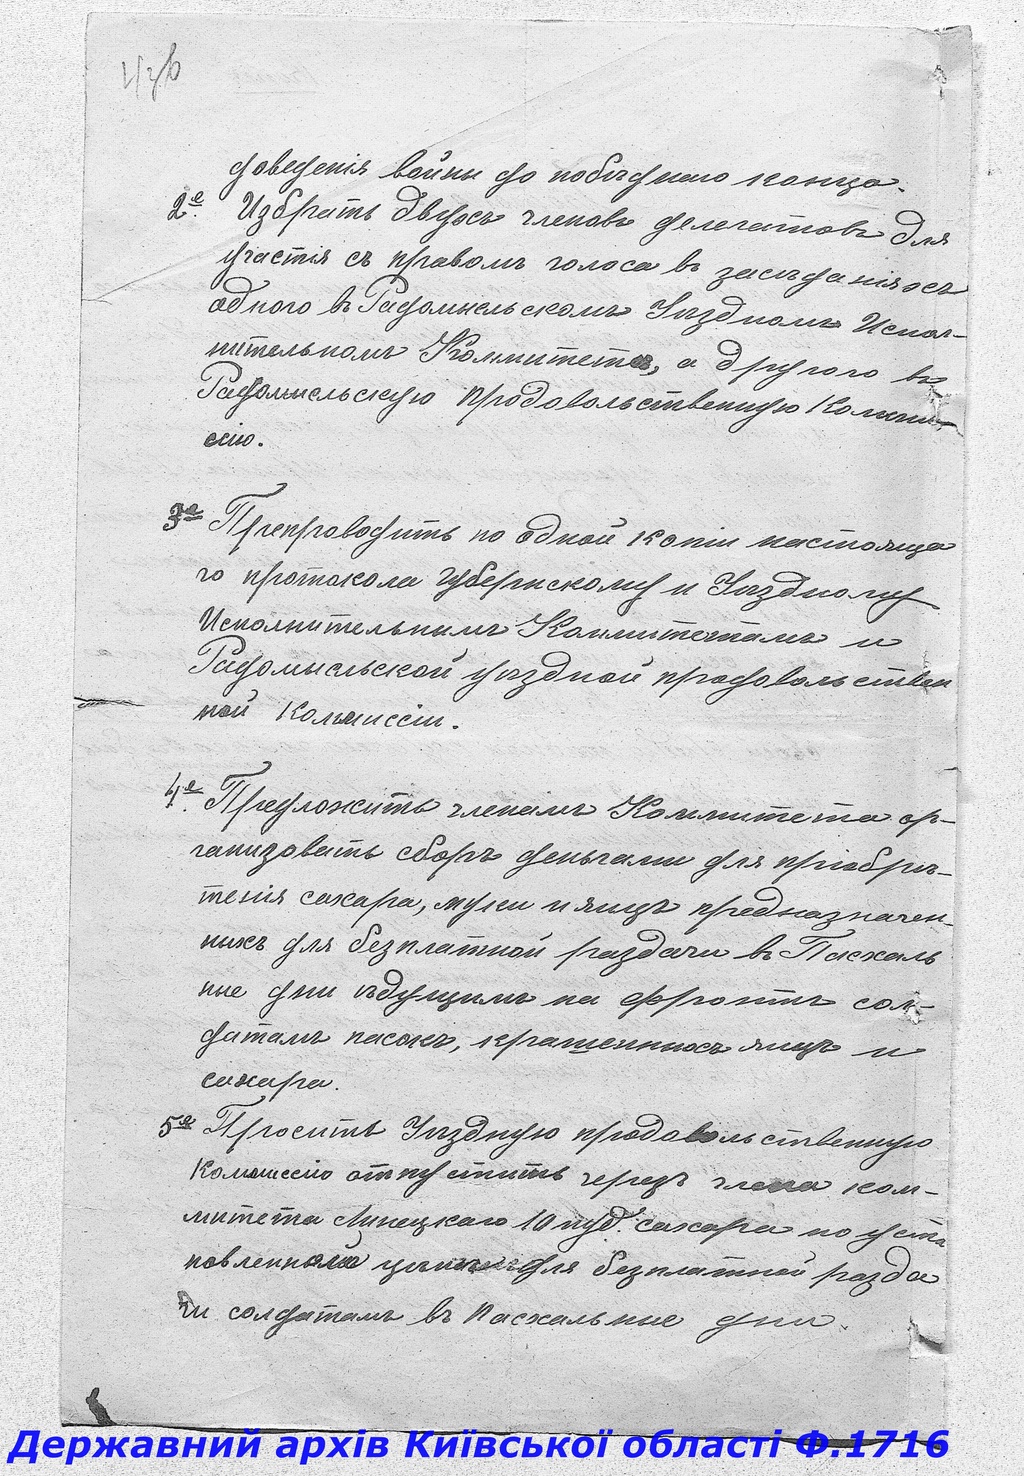 доведенія войны до побѣднаго конца.
2е. Избрать двухъ членовъ делегатовъ для
участія съ правомъ голоса въ засѣданіяхъ
одного въ Радомысльскомъ Уѣздномъ Испол-
нительномъ Коммитетѣ, а другого въ
Радомысльскую продовольственную Коммис-
сію.
3е Препроводить по одной копіи настояща
го протокола Губернскому и Уѣздному
Исполнительнымъ Коммитетамъ и
Радомысльской уѣздной продовольствен
ной Коммиссіи.
4е. Предложить членамъ Коммитета ор-
ганизовать сборъ деньгами для пріобрѣ-
тенія сахара, муки и яицъ предназначен-
ныхъ для безплатной раздачи въ Пасхаль
ные дни ѣдущимъ на фронтъ сол-
датамъ пасокъ, крашенныхъ яицъ и
сахара.
5е Просить Уѣздную продовольственную
Коммиссію отпустить черезъ члена ком-
митета Липецкаго 10 пуд. сахара по уста
новленной цѣнѣ для безплатной разда
чи солдатамъ въ Пасхальные дни.
Державний архів Київської області Ф.1716